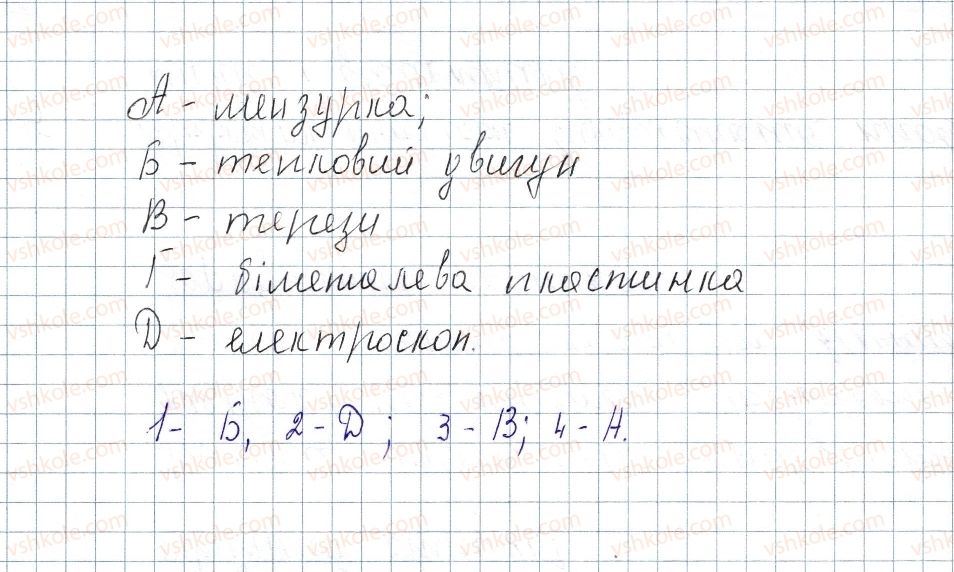 А - мензурка;
Б - тепловий двигун
В - терези
Г - біметалева пластинка
Д - електроскоп.
1 - Б, 2 - Д; 3 - В; 4 - А.